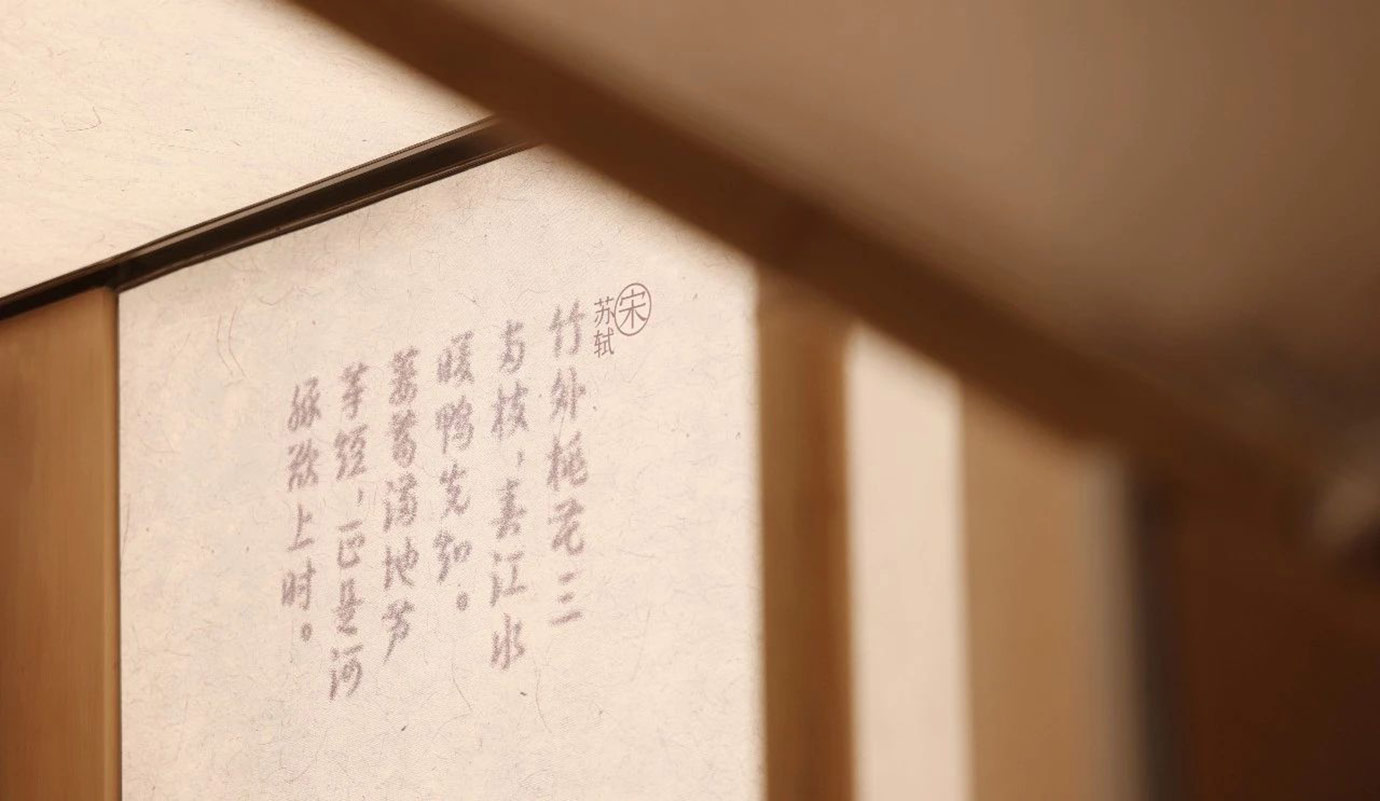 宋
苏轼
竹外桃花三
两枝，春江水
暖鸭先知。
蒌蒿满地芦
芽短，正是河
豚欲上时。